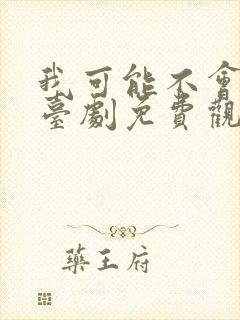 我可能不會
臺劇免費觀
藥王府